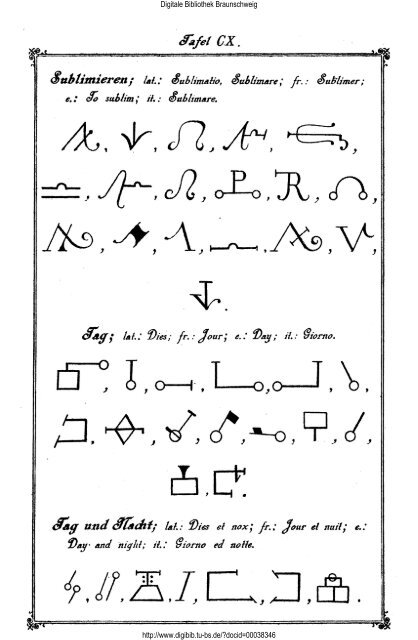 Digitale Bibliothek Braunschweig
Tafel CX.
Sublimieren; lat.: Sublimatio, Sublimare; fr.: Sublimer;
e.: To sublim; it.: Sublimare.
Tag; lat.: Dies; fr.: Jour; e.: Day; it.: Giorno.
Tag und Nacht; lat.: Dies et nox; fr.: Jour et nuit; e.:
Day and night; it.: Giorno ed notte.
http://www.digibib.tu-bs.de/?docid=00038346